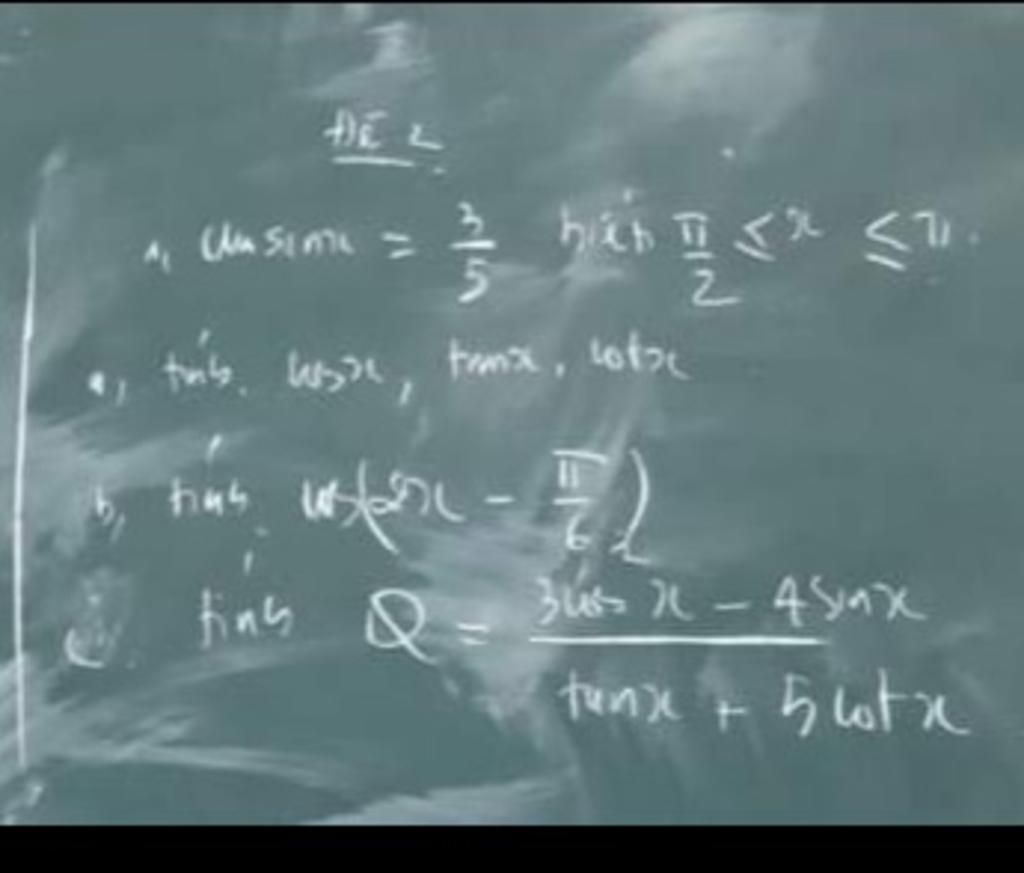 ĐỀ 2
1, cho sinx = 3/5 biết π/2 ≤ x ≤ π.
a, tính cosx, tanx, cotx
b, tính cos(2x - π/6)
c. tính Q = (3cos x - 4sinx)/(tanx + 5cotx)